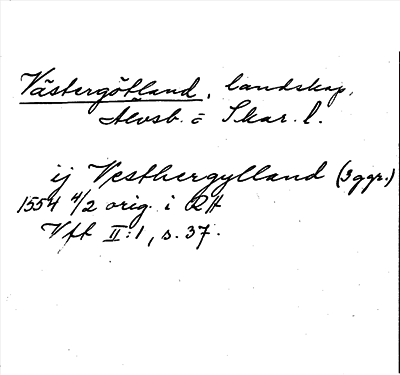 Västergötland, landskap,
Älvsb. o Skar. l.
ij Vesthergylland (3 ggr.)
1554 4/2 orig. i RA
Vft II:1, s. 37.